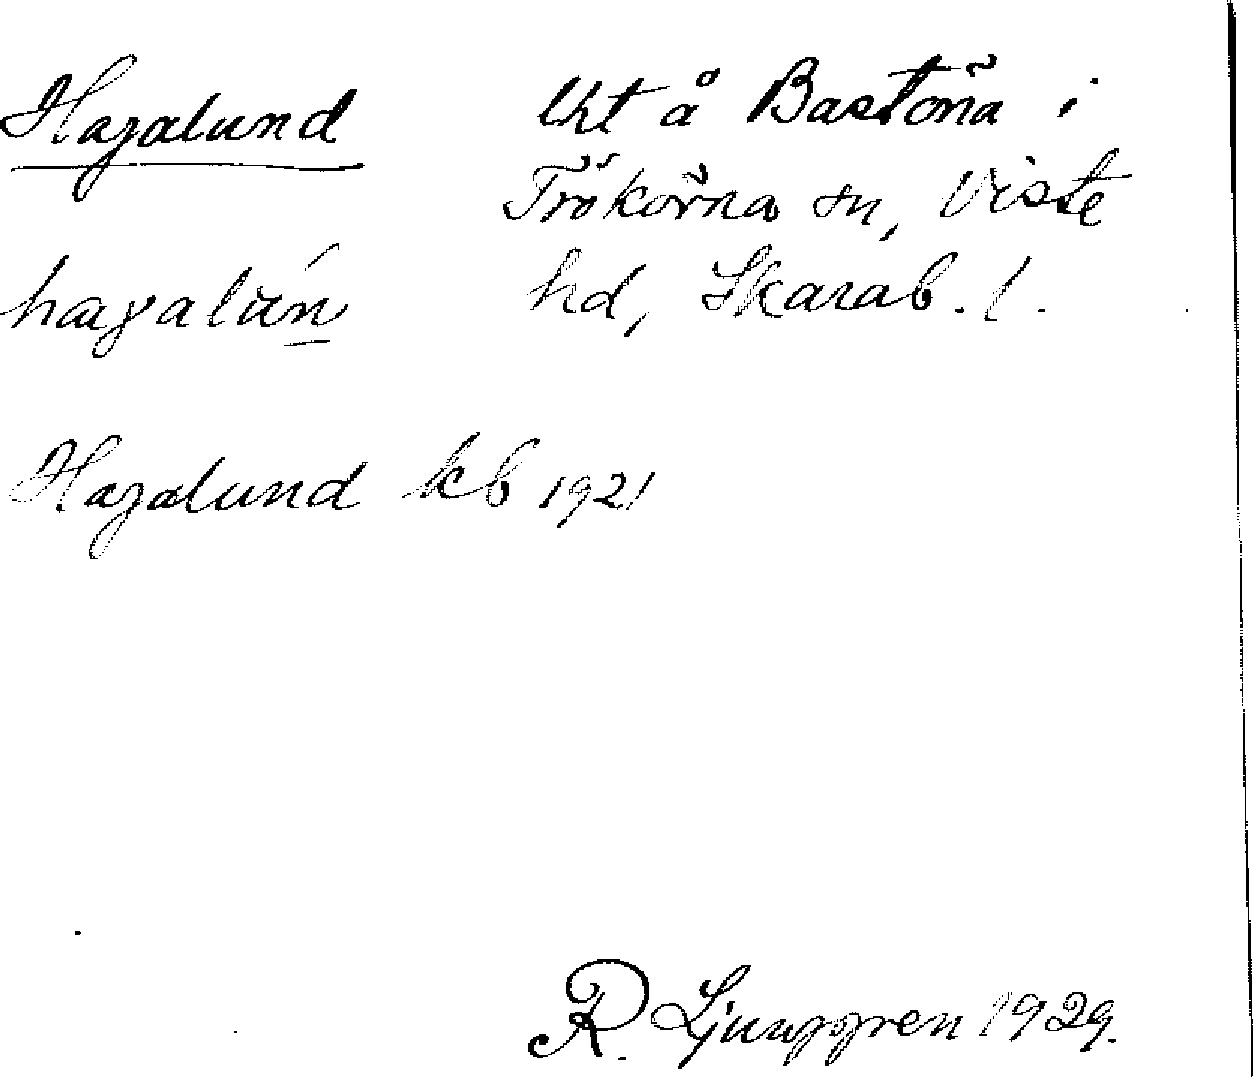 Hagalund lht å Bastöna i
Trökörna sn, Viste
hagalún hd, Skarab. l.
Hagalund kb 1921
R. Ljunggren 1929.